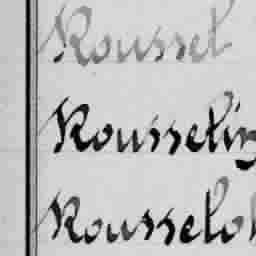 Roussel
Rousselin
Rousselot